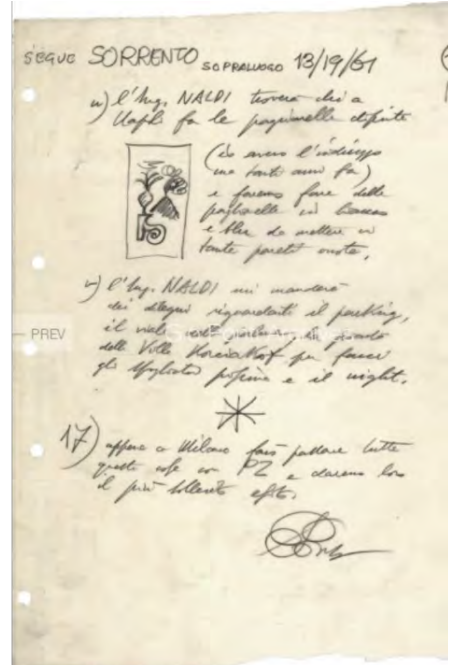 SEGUE SORRENTO SOPRALUOGO 13/19/61
u) l'Ing. NALDI troverà chi a
Napoli fa le pagliarelle dipinte
(io avevo l'indirizzo
ma tanti anni fa)
e faremo fare delle
pagliarelle in bianco
e blu da mettere in
tante pareti vuote.
v) l'Ing. NALDI mi manderà
dei disegni riguardanti il parking,
PREV
il viale
della Villa per farci
gli spogliatoi piscina e il night.
17) appena a Milano farò passare tutte
queste cose con PZ e daremo loro
il più sollecito esito.